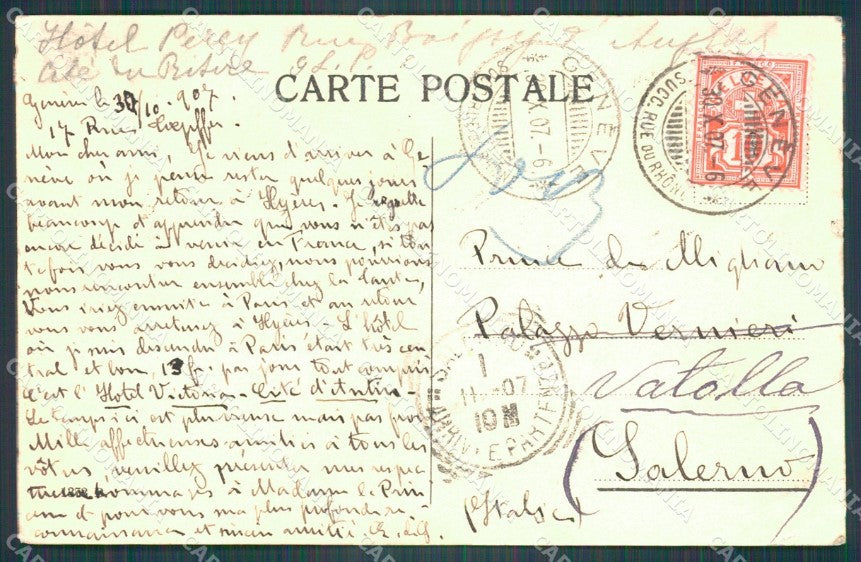 Hôtel Percy Rue Boissy d'Anglas
Cité du Retiro
CARTE POSTALE
Genève le 30/10 . 907.
17 Rue Toepffer
Mon cher ami, Je viens d'arriver à Ge
nève où je pense rester quelques jours
avant mon retour à Hyères. Je regrette
beaucoup d'apprendre que vous n'êtes pas
encore décidé à venir en France, si tou
tefois vous vous décidiez, nous pourrions
nous rencontrer ensemble chez la
Vous iriez ensuite à Paris et au retour
vous vous arrêterez à Hyères - L'hôtel
où je suis descendu à Paris était très cen
tral et bon, 13 fr. par jour tout compris
C'est l'Hotel Victoria - Cité d'Antin -
Le temps ici est pluvieux mais pas froid
Mille affectueuses amitiés à tous les
vôtres, veuillez présenter mes respec
tueux hommages à Madame la Prin
cesse et pour vous ma plus profonde re-
connaissance et mon amitié
GENÈVE
30.X.07.-6
GENÈVE
30.X.07.-6
SUCC. RUE DU RHÔNE
HELVETIA
10
Prince de Migliano
Palazzo Vernieri
Vatolla
(Salerno)
(Italie)
1
11-07
10M
ARRIVI E PARTENZE